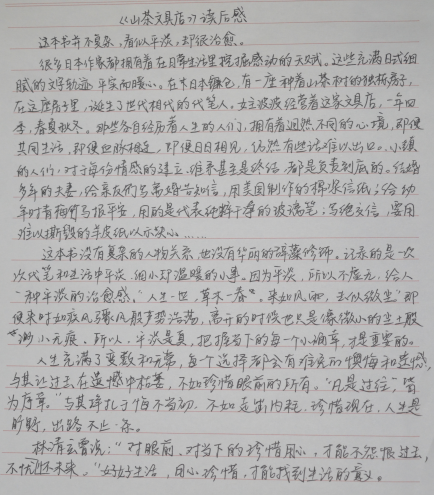 《山茶文具店》读后感
这本书并不复杂，看似平淡，却很治愈。
很多日本作家都拥有着在日常生活里挖掘感动的天赋。这些充满日式细
腻的文字轨迹，平实而暖心。在日本镰仓，有一座种着山茶树的独栋房子，
在这房子里，诞生了世代相传的代笔人。女主波波经营着这家文具店，一年四
季，春夏秋冬。那些各自经历着人生的人们，拥有着迥然不同的心境，即便
共同生活，即便血脉相连，即便日日相见，仍然有些话难以出口。小镇
的人们，对于每份情感的建立、维系甚至是终结，都是负责到底的。结婚
多年的夫妻，给亲友们写离婚告知信，用美国制作的棉浆信纸；给幼
年时青梅竹马报平安，用的是代表纯粹干净的玻璃笔；写绝交信，要用
难以撕毁的羊皮纸以示决心……
这本书没有复杂的人物关系，也没有华丽的辞藻修饰。记录的是一次
次代笔和生活中平淡、细小却温暖的小事。因为平淡，所以不虚无，给人
一种平淡的治愈感。"人生一世，草木一春。来如风雨，去似微尘"即
便来时如疾风骤雨般声势浩荡，离开的时候也只是像微小的尘土般
渺小无痕。所以，平淡是真，把握当下的每个小确幸，才是重要的。
人生充满了变数和无常，每个选择都会有难免的懊悔和遗憾，
与其让过去在遗憾中枯萎，不如珍惜眼前的所有。"凡是过往，皆
为序章。"与其挣扎于悔不当初，不如走出内耗，珍惜现在，人生是
旷野，出路不止一条。
林清玄曾说："对眼前、对当下的珍惜用心，才能不怨恨过去，
不忧怀未来。"好好生活，用心珍惜，才能找到生活的意义。